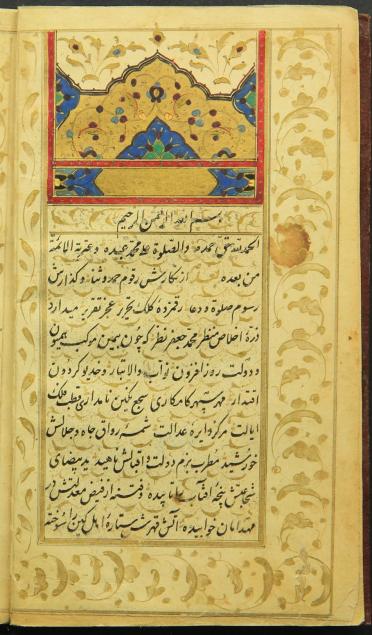 بسم الله الرحمن الرحیم
الحمدلله حق حمده والصلوة علی محمد عبده و عترة الائمة
من بعده از نگارش رقوم حمد و ثنا و گذارش
رسوم صلوة و دعا رقمزده کلک تحریر عجز تقریر میدارد
ذره اخلاص منظر محمد جعفر نظر که چون بیمن موکب همیون
و دولت روز افزون نواب والاتبار و خدیو گردون
اقتدار مهر سپهر کامکاری سجع نگین نامداری قطب فلک
ایالت مرکز دایره عدالت شمسه رواق جاه و جلالش
خورشید مطرب بزم دولت و اقبالش ناهید ید بیضای
پنجه آفتاب تابیده و فتنه از فیض معدلتش در
مهد امان خوابیده آتش قهرش ستاره اهل کین را سوخته